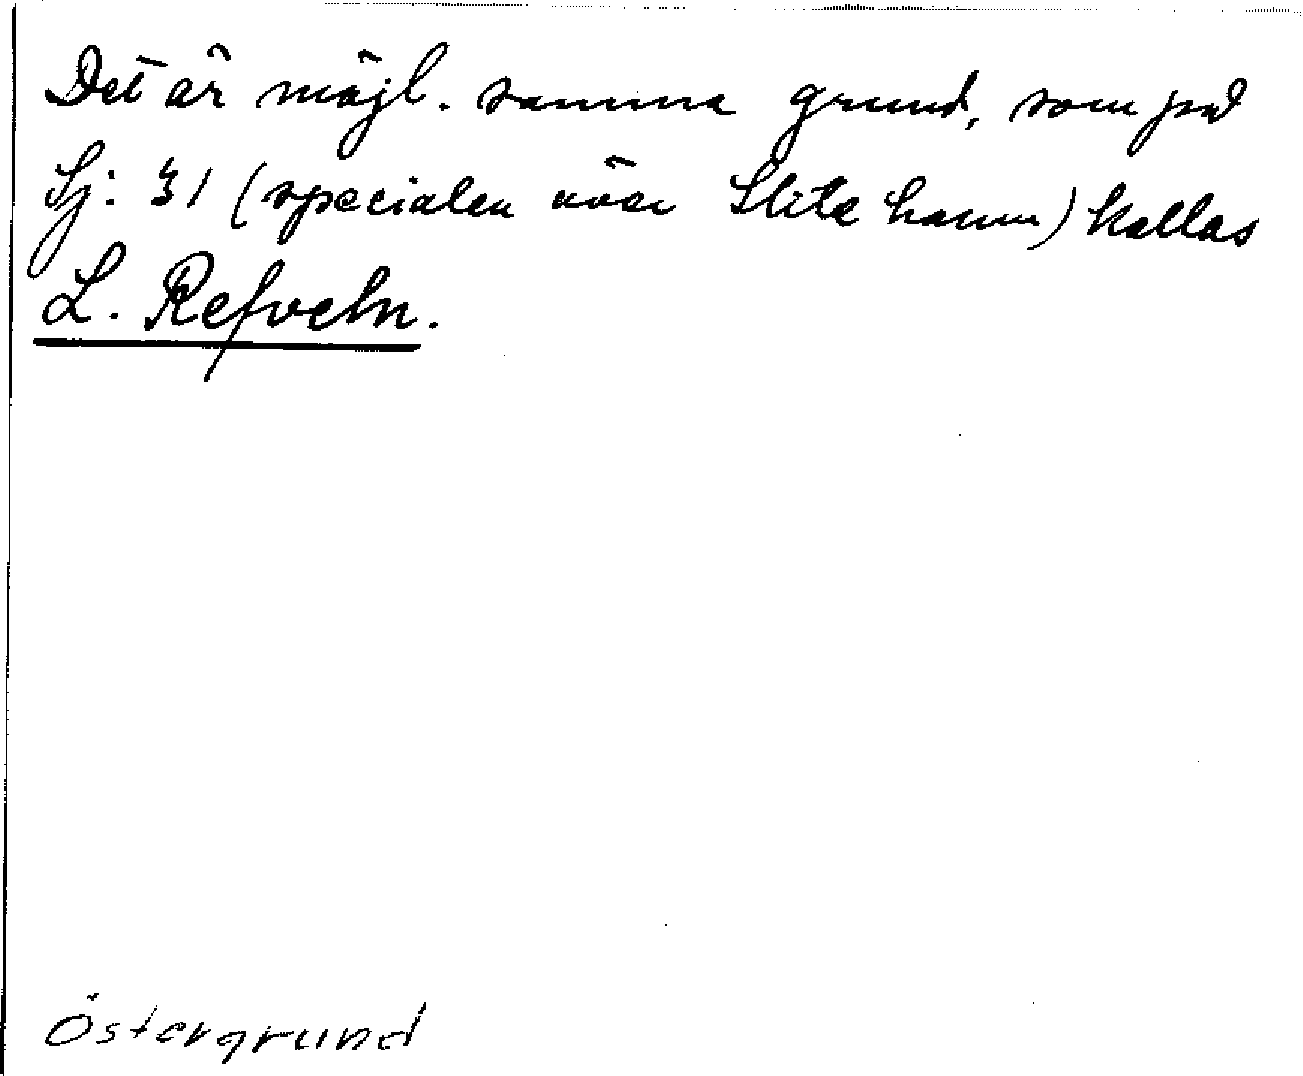 Det är möjl. samma grund, som på
Sj: 31 (specialen över Slite hamn) kallas
L. Refveln.
Östergrund